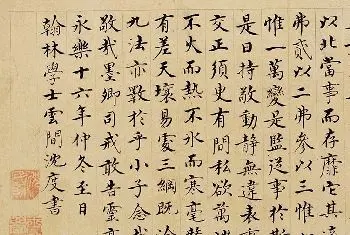 以北當事而存靡它其
弗貳以二弗參以三惟
惟一萬變是監從事於
是曰持敬動靜無違表
交正須臾有間私欲萬
不火而熱不冰而寒毫
有差天壤易處三綱既
九法亦斁於乎小子念
敬哉墨卿司戒敢告靈
永樂十六年仲冬至日
翰林學士雲間沈度書